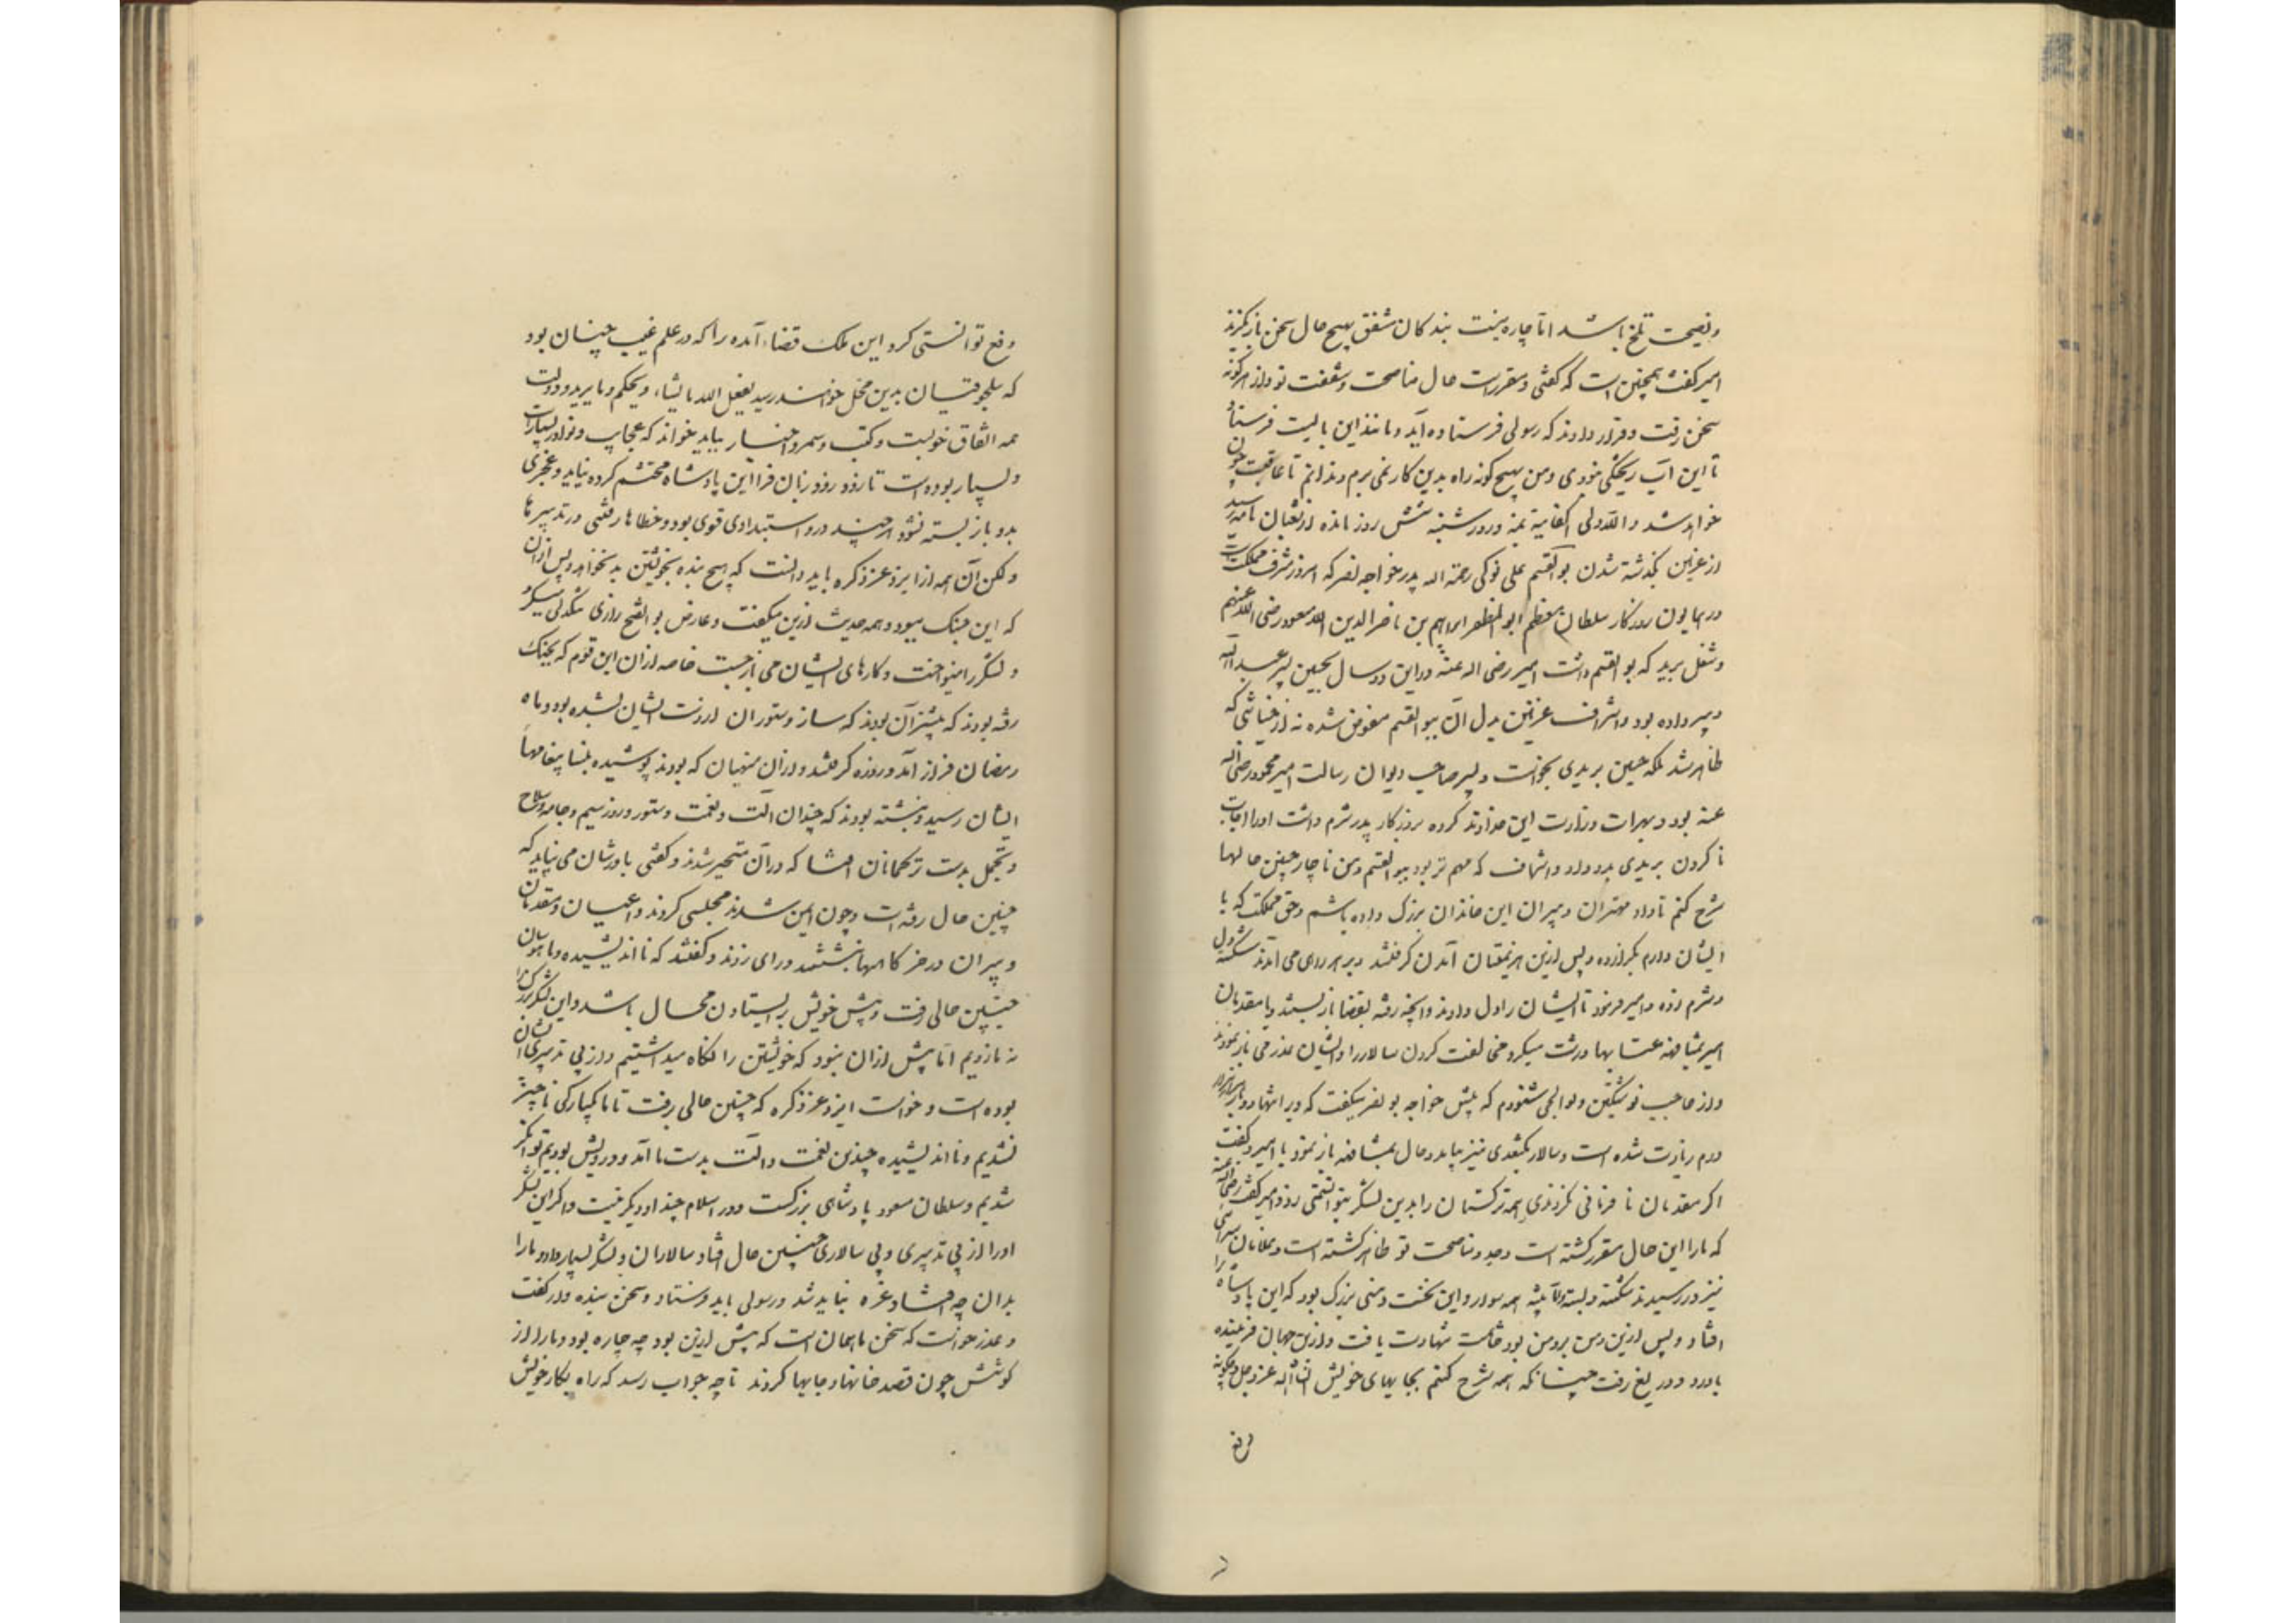 و نصیحت تلخ باشد اما چاره نیست بندکان مشفق بهیچ حال سخن بازنکیرند
امیر کفت همچنین است که کفتی و مقررست حال مناصحت و شفقت تو و از هر کونه
سخن رفت و قرار دادند که رسولی فرستاده آید و مانند این بایست فرستاد
تا این آب ریختکی نبودی و من بهیچ کونه راه بدین کار نمی برم و ندانم تا عاقبت چون
خواهد شد والله ولی الکفایة بمنه و روز شنبه شش روز مانده از شعبان نامه رسید
از غزنین کذشته شدن بوالقسم علی نوکی رحمة الله پدر خواجه نصر که امروز مشرف مملکت است
در همایون روزکار سلطان معظم ابو المظفر ابراهیم بن ناصر الدین الله مسعود رضی الله عنهم
و شغل برید که بوالقسم داشت امیر رضی الله عنه در این دو سال بحسین پسر عبدالله
دبیر داده بود و اشراف غزنین بدل آن ببوالقسم مفوض شده نه از خیانتی که
ظاهر شد بلکه حسین بریدی بخواست و پسر صاحب دیوان رسالت امیر محمود رضی الله
عنه بود و بهرات وزارت این خداوند کرده بروزکار پدر شرم داشت او را اجابت
نا کردن بریدی بدو داد و اشراف که مهم تر بود ببوالقسم و من ناچار چنین حالها
شرح کنم تا داد مهتران و پیران این خاندان بزرک داده باشم و حق ممکلت که با
ایشان دارم بکزارده و پس ازین هزیمتیان آمدن کرفتند و بر هر روی می آمدند شکسته دل
و شرم زده و امیر فرمود تا ایشان را دل دادند و آنچه رفته بقضا باز بستند و با مقدمان
امیر بمشافهه عتابها درشت میکرد مخالفت کردن سالار را و ایشان عذر می باز نمودند
و از حاجب نوشتکین ولوالجی شنودم که پیش خواجه بو نصر میکفت که ویرا تنها دو بار هزار هزار
درم زیادت شده است و سالار بکتغدی نیز بیامد و حال بمشافهه باز نمود با امیر و کفت
اکر مقدمان نا فرمانی نکردندی همه ترکستان را بدین لشکر بتوانستمی زد و امیر کفت رضی الله عنه
که ما را این حال مقرر کشته است و جد و مناصحت تو ظاهر کشته است و غلامان سرائی
نیز در رسیدند شکسته و بسته الا بیشتر همه سوار و این نخست وهنی بزرک بود که این پادشاه را
افتاد و پس ازین وهن بر وهن بود تا خاتمت شهادت یافت و ازین جهان فریبنده
با درد و دریغ رفت چنانکه همه شرح کنم بجایهای خویش انشاء الله عز و جل و چکونه
دفع
دفع توانستی کرد این ملک قضاء آمده را که در علم غیب چنان بود
که سلجوقیان بدین محل خواهند رسید یفعل الله ما یشاء و یحکم ما یرید و دولت
همه اتفاق خوبست و کتب و سمر و اخبار بباید خواند که عجایب و نوادر بسیارست
و بسیار بوده است تا زود زود زبان فرا این پادشاه محتشم کرده نیاید و عجزی
بدو باز بسته نشود هر چند در و استبدادی قوی بود و خطاها رفتی در تدبیرها
و لکن آن همه از ایزد عز ذکره باید دانست که هیچ بنده بخویشتن بد نخواهد و پس از آن
که این جنک ببود همه حدیث ازین میکفت و عارض بو الفتح رازی تنکدلی میکرد
و لشکر را مینواخت و کارهای ایشان می بازجست خاصه از آن این قوم که بجنک
رفته بودند که بیشتر آن بودند که ساز و ستوران از دست ایشان بشده بود و ماه
رمضان فراز آمد و روزه کرفتند و از آن منهیان که بودند پوشیده بنسا پیغامها
ایشان رسید و نبشته بودند که چندان آلت و نعمت و ستور و زر و سیم و جامه و سلاح
و تجمل بدست ترکمانان افتاد که در آن متحیر شدند و کفتی باورشان می نیاید که
چنین حال رفته است و چون ایمن شدند مجلسی کردند و اعیان و مقدمان
و پیران در خرکاهها بنشستند و رای زدند و کفتند که نا اندیشیده و نابیوسان
چنین حالی رفت و پیش خویش بر ایستادن محال باشد و این لشکر بزرک را
نه ما زدیم اما بیش از آن نبود که خویشتن را نکاه میداشتیم و از بی تدبیری ایشان
بوده است و خواست ایزد عز ذکره که چنین حالی رفت تا ما یکبارکی ناچیز
نشدیم و نا اندیشیده چندین نعمت و آلت بدست ما آمد و درویش بودیم توانکر
شدیم و سلطان مسعود پادشاهی بزرکست و در اسلام چنو دیکر نیست و اکر این لشکر
او را از بی تدبیری و بی سالاری چنین حال افتاد سالاران و لشکر بسیار دارد و ما را
بدان چه افتاد غره نباید شد و رسولی باید فرستاد و سخن بنده وار کفت
و عذر خواست که سخن ما همان است که پیش ازین بود چه چاره بود ما را از
کوشش چون قصد خانها و جایها کردند تا چه جواب رسد که راه بکار خویش